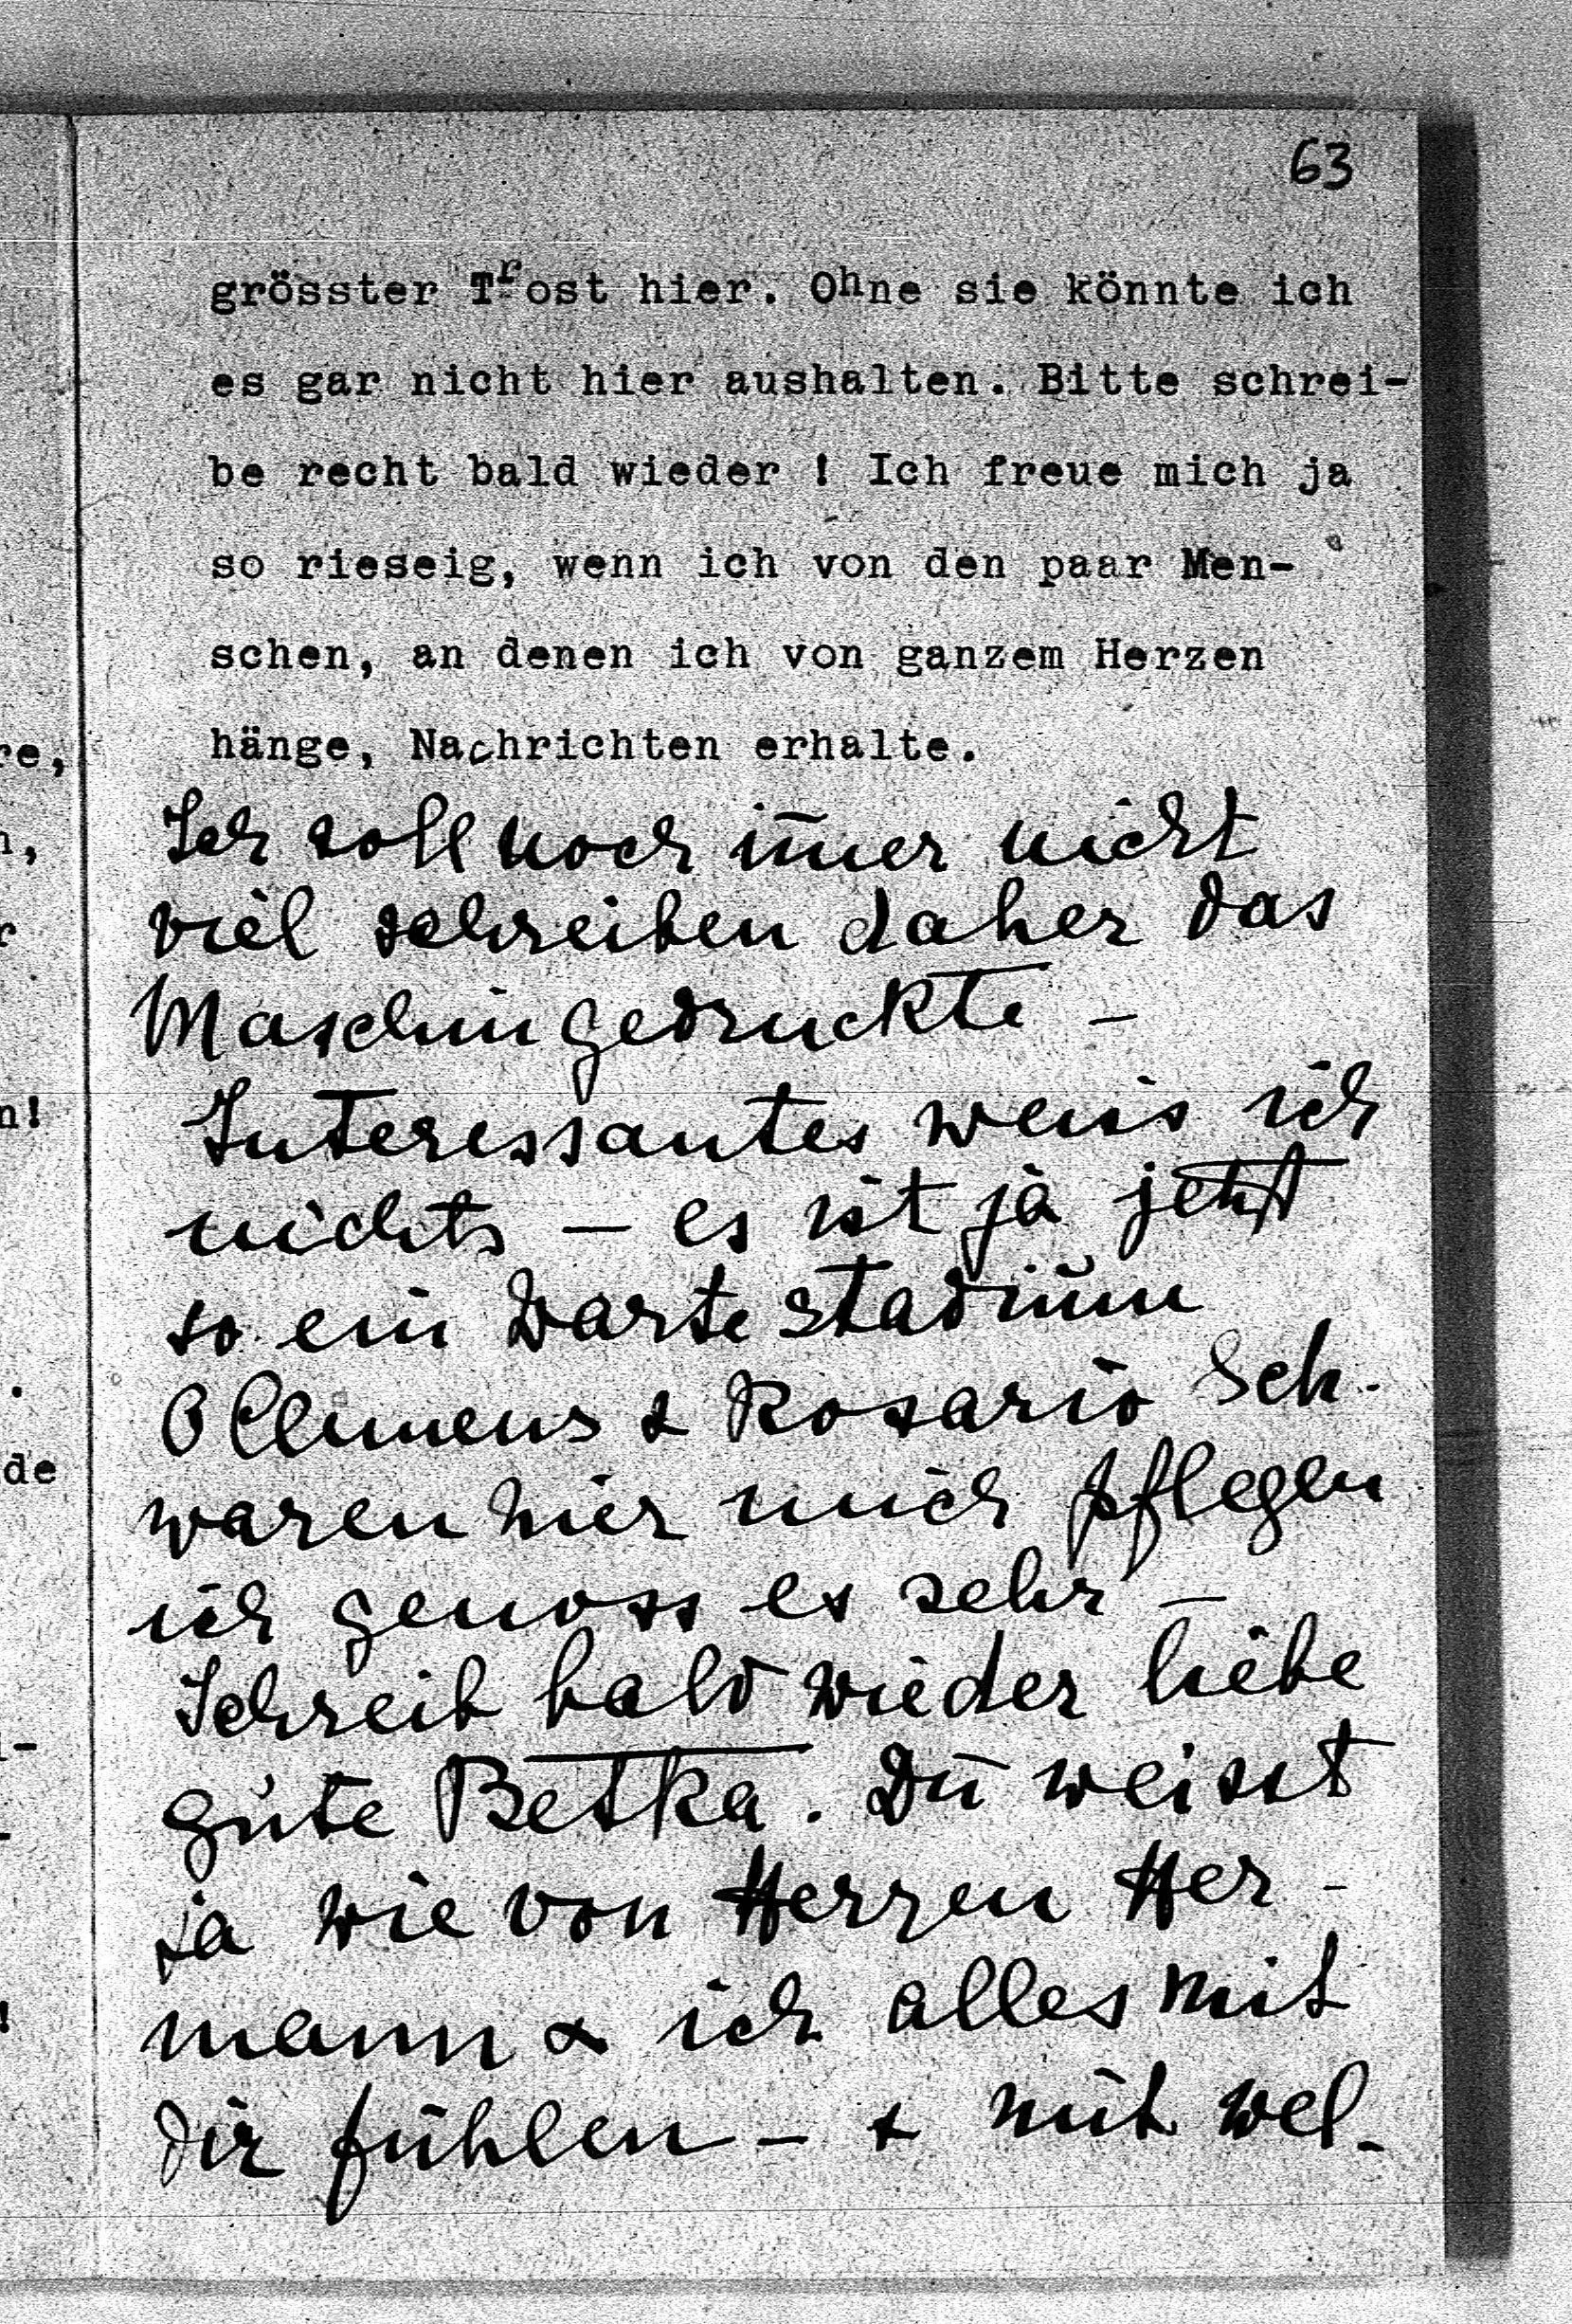 63
grösster Trost hier. Ohne sie könnte ich
es gar nicht hier aushalten. Bitte schrei-
be recht bald wieder ! Ich freue mich ja
so rieseig, wenn ich von den paar Men-
schen, an denen ich von ganzem Herzen
hänge, Nachrichten erhalte.
Ich soll noch im̄er nicht
viel schreiben daher das
Maschingedruckte –
Interessantes weiss ich
nichts – es ist ja jetzt
so ein Wartestadium
O Clemens & Rosario Sch.
waren hier mich pflegen
ich genoss es sehr –
Schreib bald wieder liebe
gute Betka. Du weisst
ja wie von Herzen Her-
mann & ich alles mit
Dir fühlen – & mit wel-
re,
n,
r
n!
.
de
-
-
!